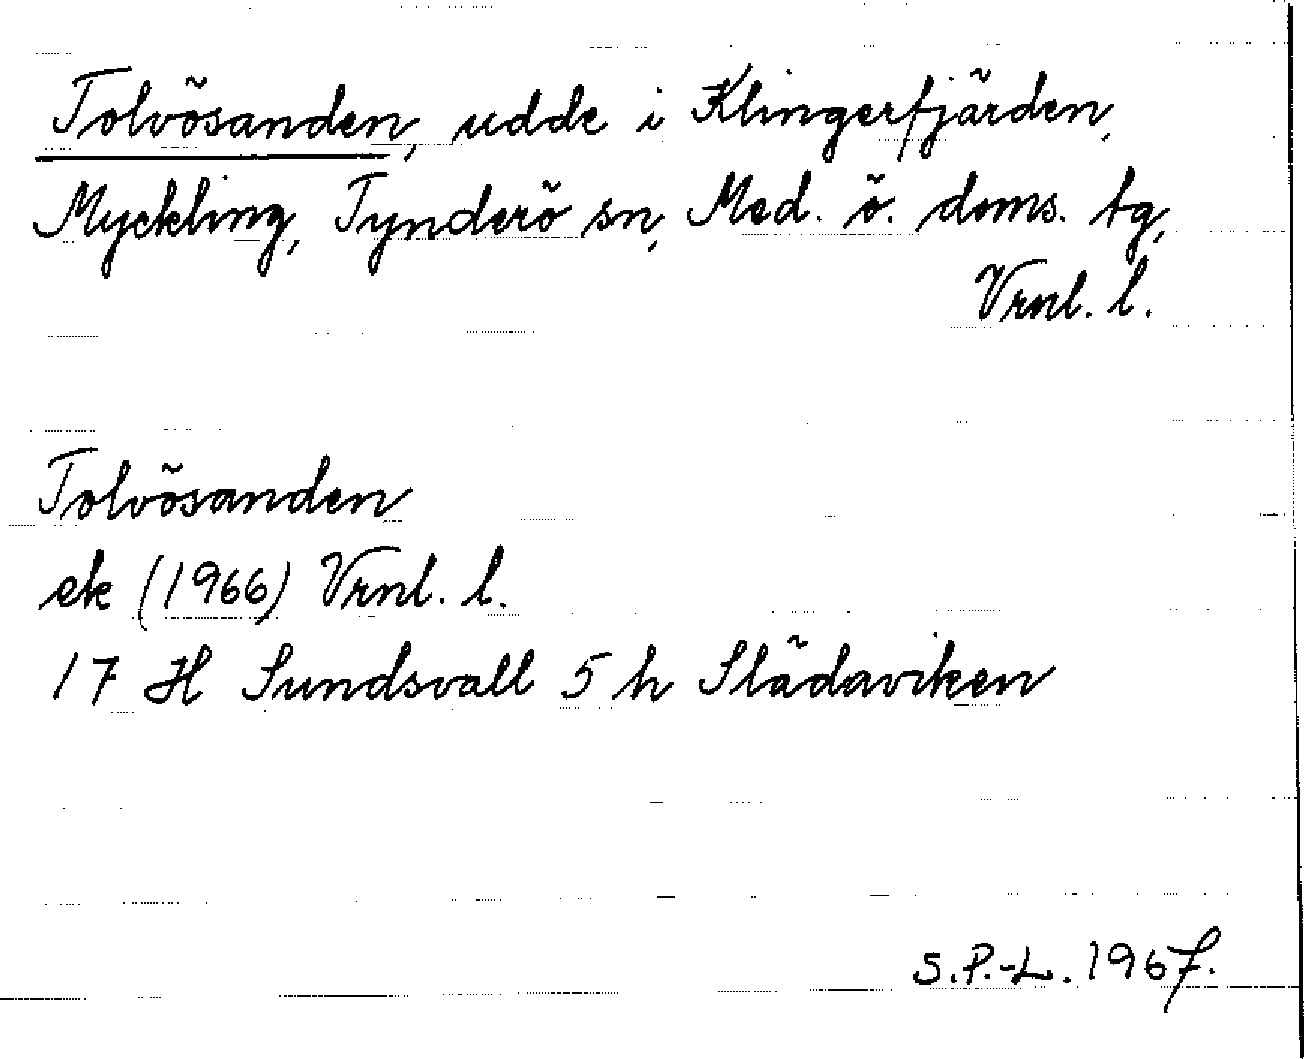 Tolvösanden, udde i Klingerfjärden,
Myckling, Tynderö sn, Med. ö. doms. tg,
Vrnl. l.
Tolvösanden
ek (1966) Vrnl. l.
17 H Sundsvall 5 h Slädaviken
S.P.-L. 1967.